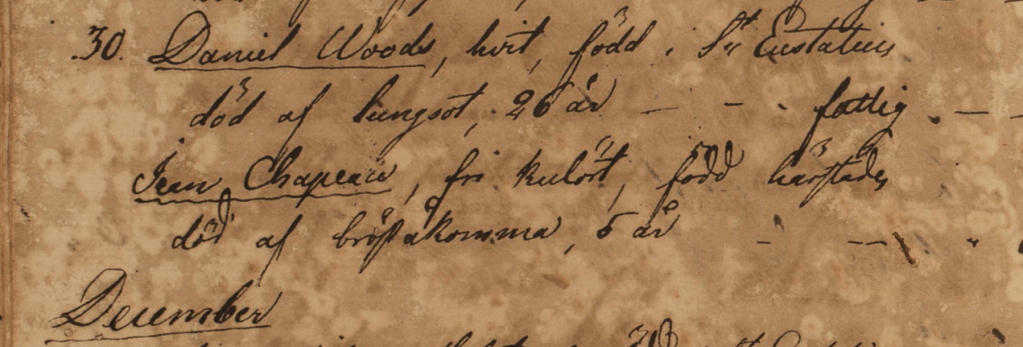 30. Daniel Woods, hvit, född i St Eustatius
död af lungsot, 26 år — - fattig. —
Jean Chapeau, fri kulört, född härstädes
död af bröståkomma, 5 år - —
December